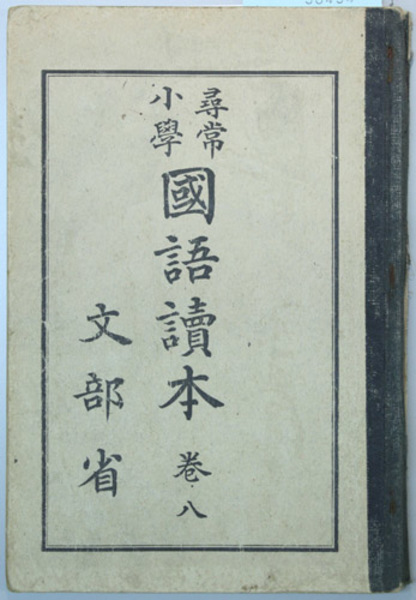 尋常
小學
國語讀本 巻八
文部省